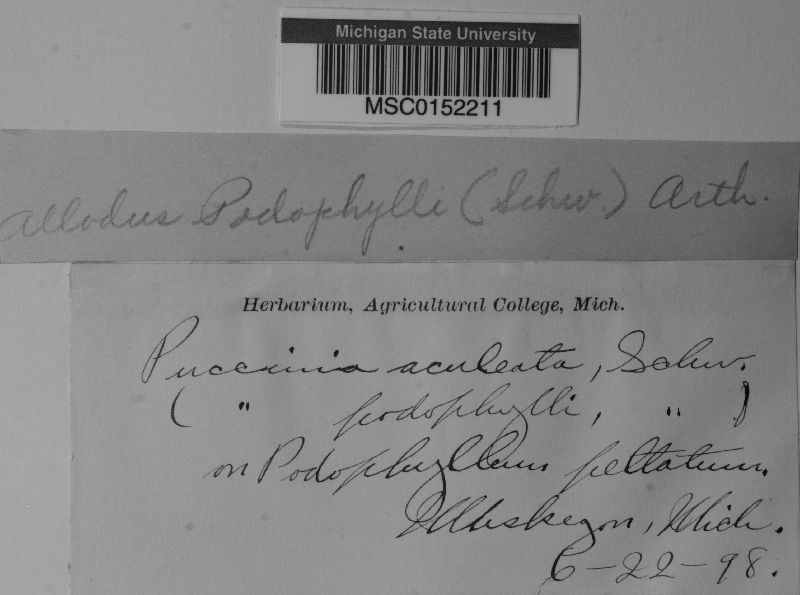 Michigan State University
MSC0152211
Allodus Podophylli (Schw.) Arth.
Herbarium, Agricultural College, Mich.
Puccinia aculeata, Schw.
( " podophylli, " )
on Podophyllum peltatum.
Muskegon, Mich.
6-22-98.